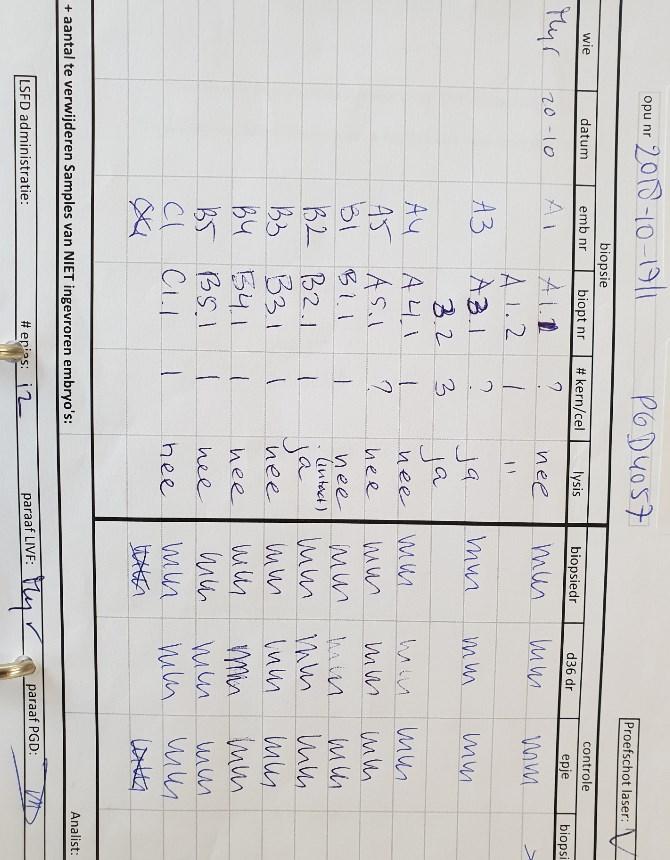 opu nr 2018-10-1911 PGD4057 Proefschot laser: √
biopsie controle
wie datum emb nr biopt nr # kern/cel lysis biopsiedr d36 dr epje biopsi
Myr 20-10 A1 A1.1 ? nee mm mm mm
A1.2 1 "
A3 A3.1 ? ja mm mm mm
3.2 3 ja
A4 A4.1 1 nee mm mm mm
A5 A5.1 ? nee mm mm mm
B1 B1.1 1 nee mm mm mm
B2 B2.1 1 ja (intact) mm mm mm
B3 B3.1 1 nee mm mm mm
B4 B4.1 1 nee mm mm mm
B5 B5.1 1 nee mm mm mm
C1 C1.1 1 nee mm mm mm
+ aantal te verwijderen Samples van NIET ingevroren embryo's: Analist:
LSFD administratie: # epjes: 12 paraaf LIVF: Myr paraaf PGD: